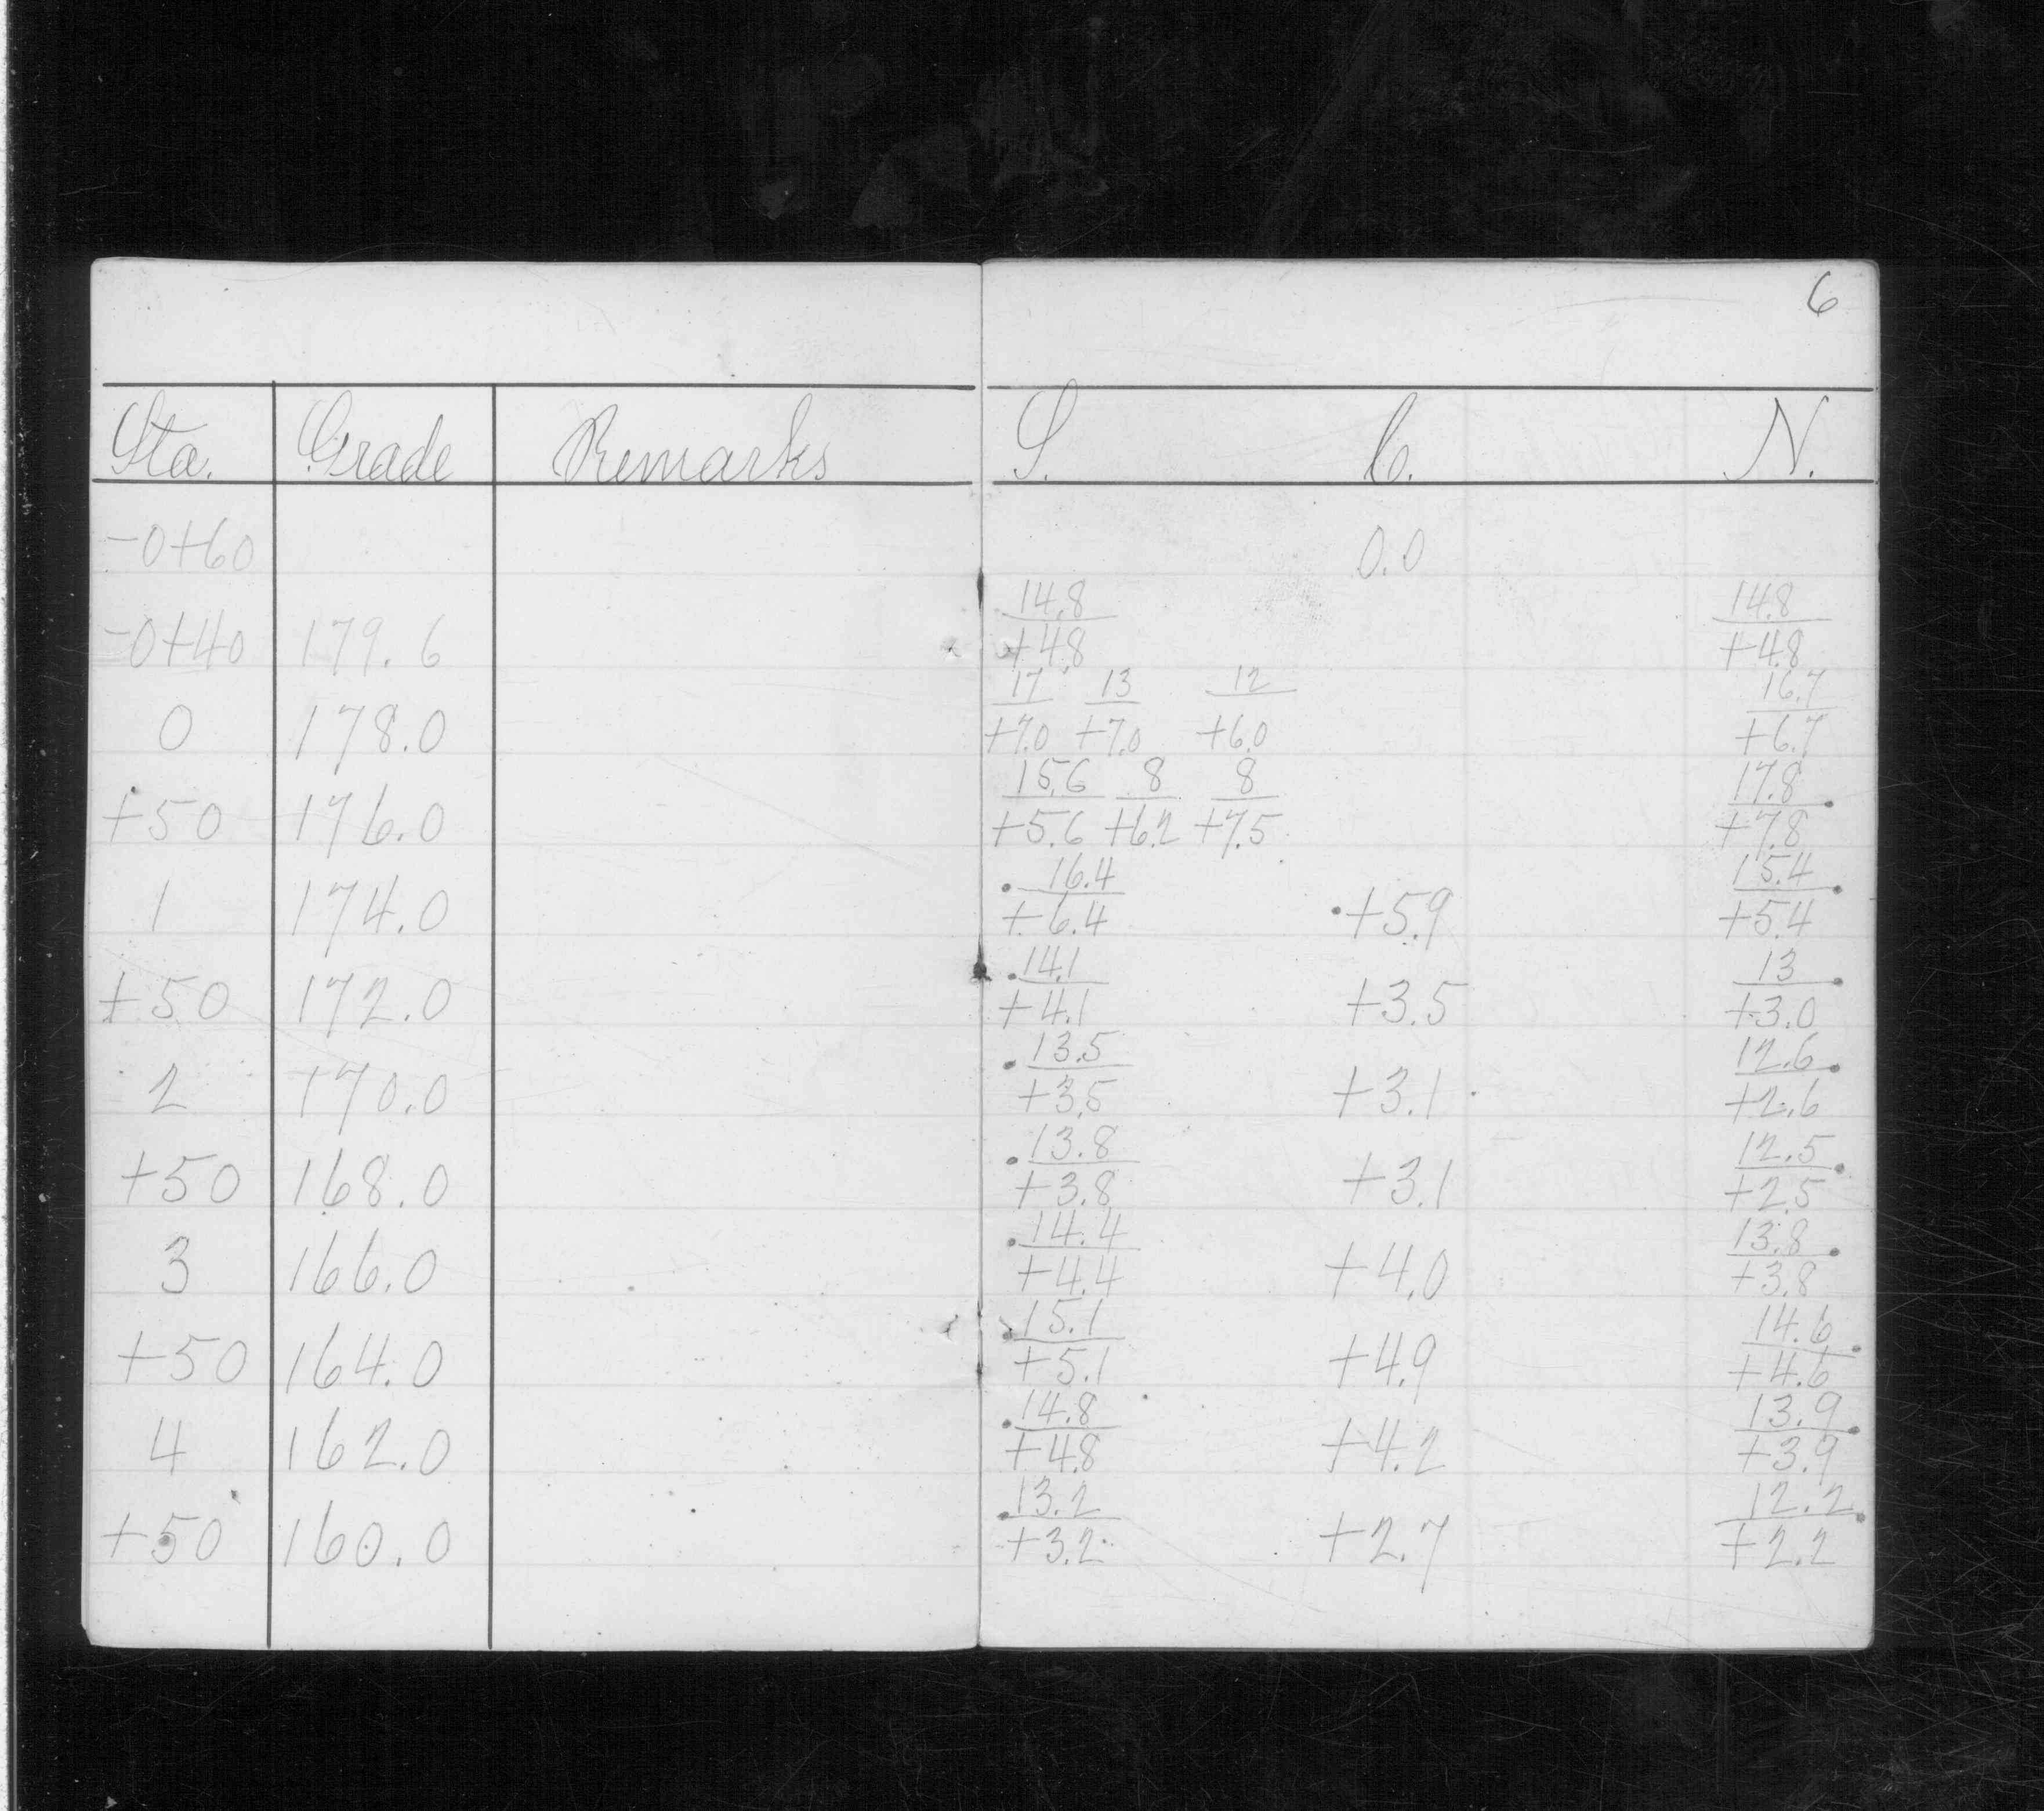 6
Sta. Grade Remarks S. C. N.
-0+60 0.0
14.8 14.8
-0+40 179.6 +4.8 +4.8
17 13 12 16.7
0 178.0 +7.0 +7.0 +6.0 +6.7
15.6 8 8 17.8
+50 176.0 +5.6 +6.2 +7.5 +7.8
16.4 15.4
1 174.0 +6.4 +5.9 +5.4
14.1 13
+50 172.0 +4.1 +3.5 +3.0
13.5 12.6
2 170.0 +3.5 +3.1 +2.6
13.8 12.5
+50 168.0 +3.8 +3.1 +2.5
14.4 13.8
3 166.0 +4.4 +4.0 +3.8
15.1 14.6
+50 164.0 +5.1 +4.9 +4.6
14.8 13.9
4 162.0 +4.8 +4.2 +3.9
13.2 12.2
+50 160.0 +3.2 +2.7 +2.2